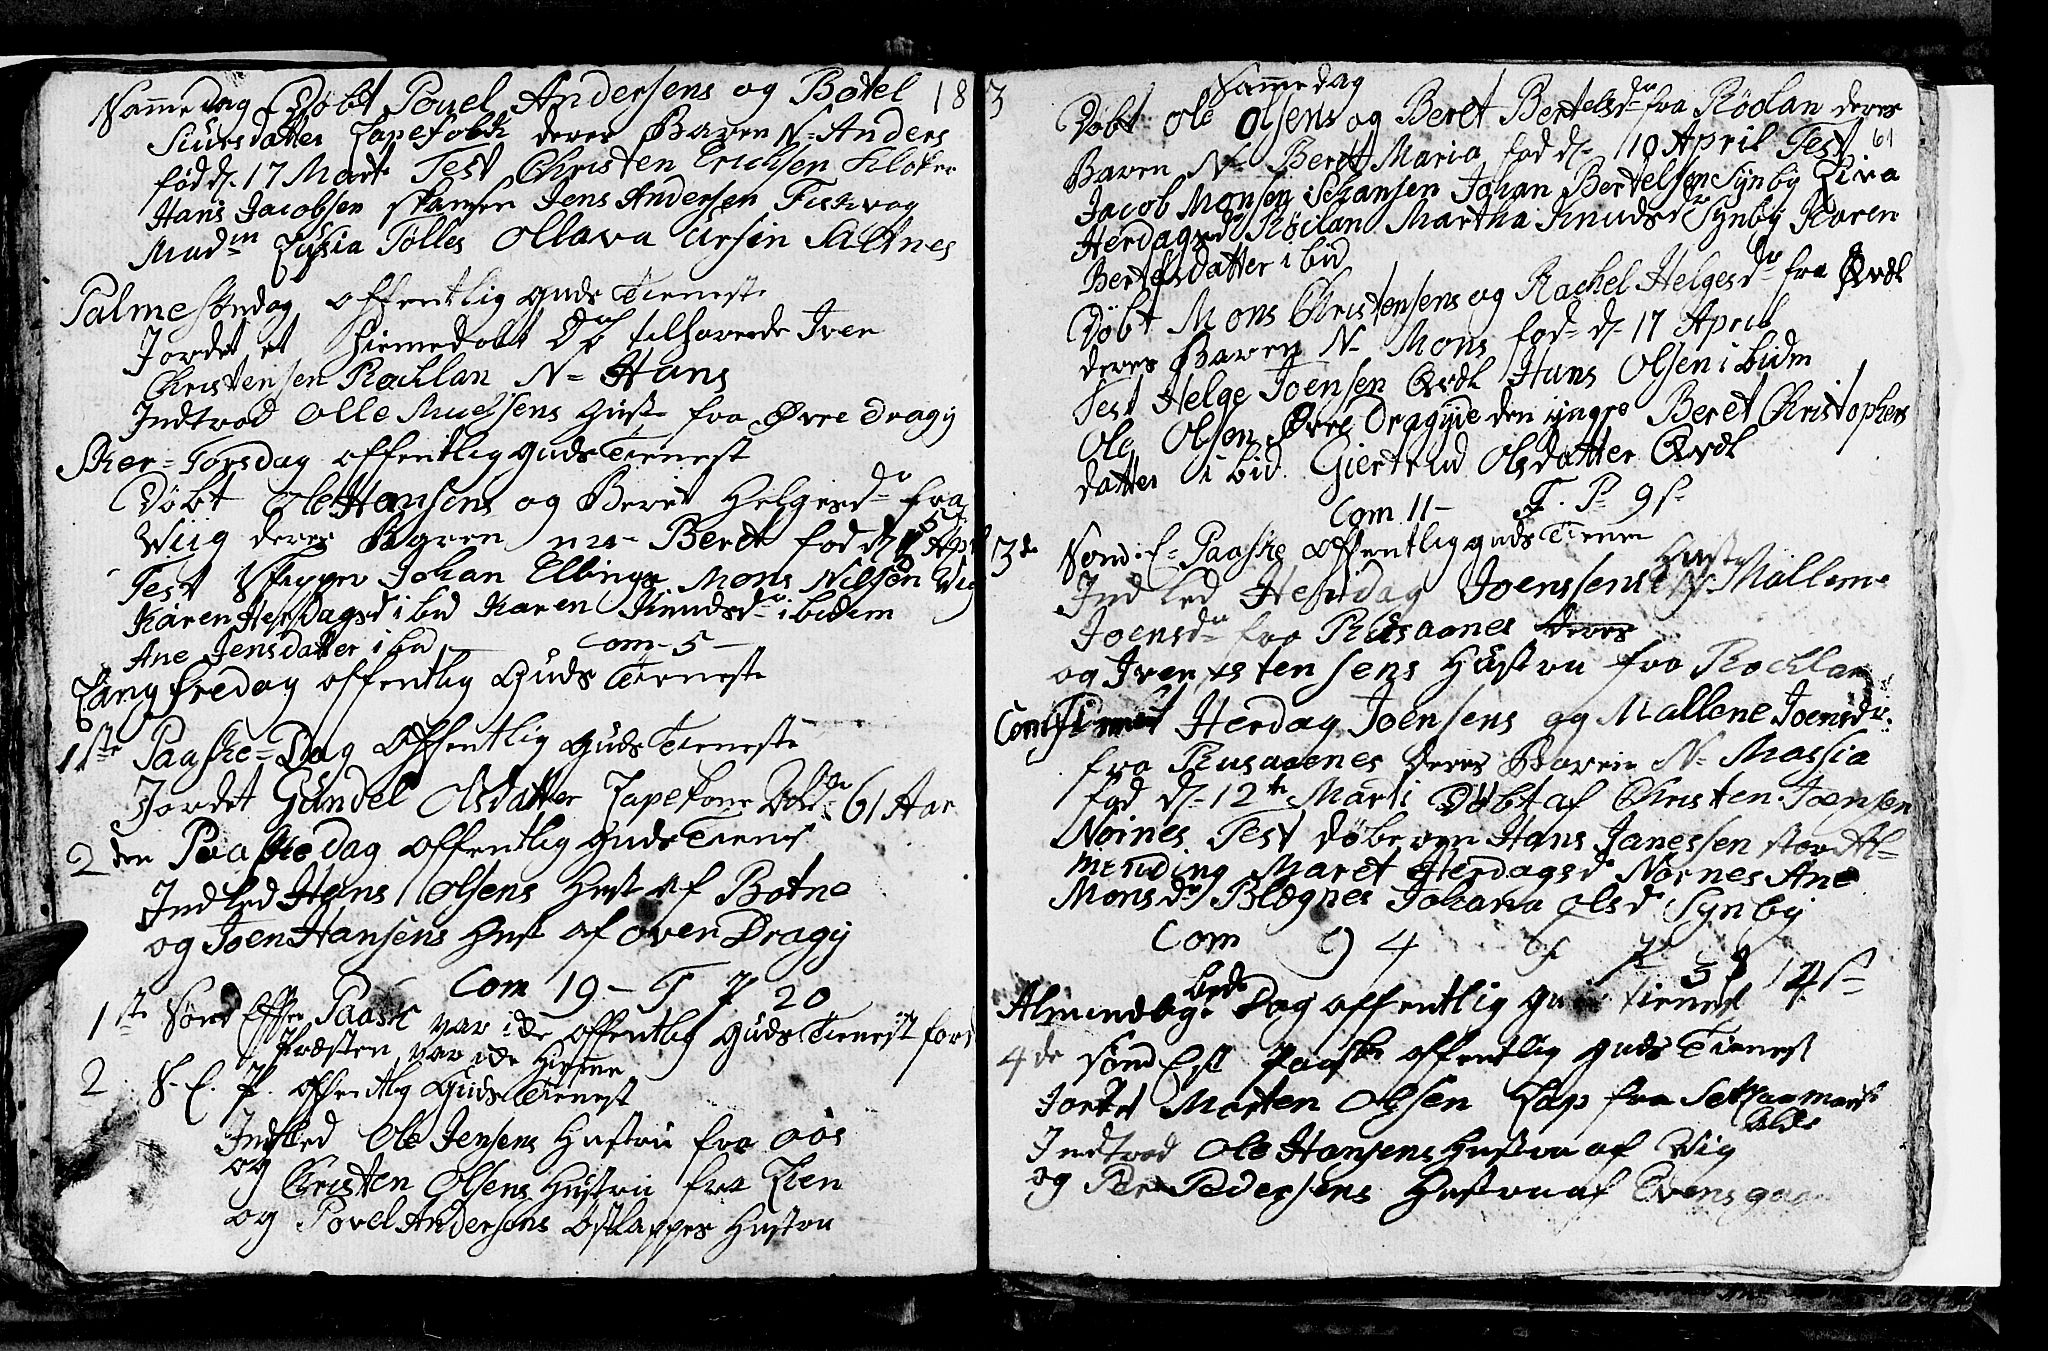 Samme dag Døbt Povel Andersens og Botel 18
Siursdatter Lapefolk deres Baren N= Anders
fød d. 17 Marti Test Christen Erichsen Kloker
Hans Jacobsen skansen Jens Andersen Fiskvog
Madm Zitsia Tølles Ollava Ursin Saltnes
Palme Søndag offentlig Guds Tieneste
Jordet et hiemedøbt tilhørende Iver
Christensen Rochlan N= Hans
Indtrod Olle Michelsens Hust= fra Øvre Dragy
Skier=Torsdag offentlig Guds Tienest
Døbt Ole Hansens og Beret Helgesdr fra
Wiig deres Baren N= Beret fød d. 5 Apr
Test Skipper Johan Ellinge Mons Nilsen Viig
Karen Herdagsd ibid Karen Knudsdr ibidem
Ane Jensdatter ibid com- 5 -
Langfredag offentlig Guds Tieneste
1ste Paaske=Dag Offentlig Guds Tieneste
Jordet Gundel Olsdatter Lapekone 61 Aar
2den Paaske Dag offentlig Guds Tienest
Indled Hans Olsens Hust af Botne
og Joen Hansens Hust af Over Dragy
Com 19 - T P 20
1ste Sønd Effter Paaske var ide offentlig Guds Tienest ford
Præsten var ide Hieme
2 S. E. P. offentlig Guds Tienest
Indled Ole Jensens Hustru fra Oos
og Christen Olsens Hustru fra Lien
og Povel Andersens Østlappes Hustru
3 Samme dag
Døbt Ole Olsens og Beret Bertelsdr fra Röolan deres
61
Baren N= Beret Maria fød d. 10 April Test
Jacob Monsen i Schansen Johan Bertelsen Synby Siva
Herdagsdr Röclan Martha Knudsdr Synby Karen
Bertelsdatter ibid
Døbt Mons Christensens og Rachel Helgesdr fra Qvæl
deres Baren N- Mons fød d. 17 April
Test Helge Joensen Qvæl Hans Olsen ibidm
Ole Olsen Øvre Dragyde den yngre Beret Christophers
datter ibid. Giertrud Olsdatter Qvæl
Com 11- T. P- 9 s-
3de Sønd. E- Paaske offentlig Guds Tienes
Hustr
Indled Herdag Joenssens N Mallene
Joensdr fra Rusaanes deres
og Iver Christensens Hustru fra Rochlan
Confirmert Herdag Joensens og Mallene Joensdr.
fra Rusaanes deres Baren N= Massia
fød d. 12te Marti Døbt af Christen Joensen
Noines Test døberen Hans Janessen stor Al=
mending Maret Herdagsd Nornes Ane
Monsdr Blægnes Johana Olsd Synby
Com 9 4 14 s
Almindelig Bede Dag offentlig Guds Tienest
4de Sønd Eft Paaske offentlig Guds Tienest
Jordet Morten Olsen Lap fra
Indtrod Ole Hansens Hustru af Viig
og Per Pedersens Hustru af Evensgaa